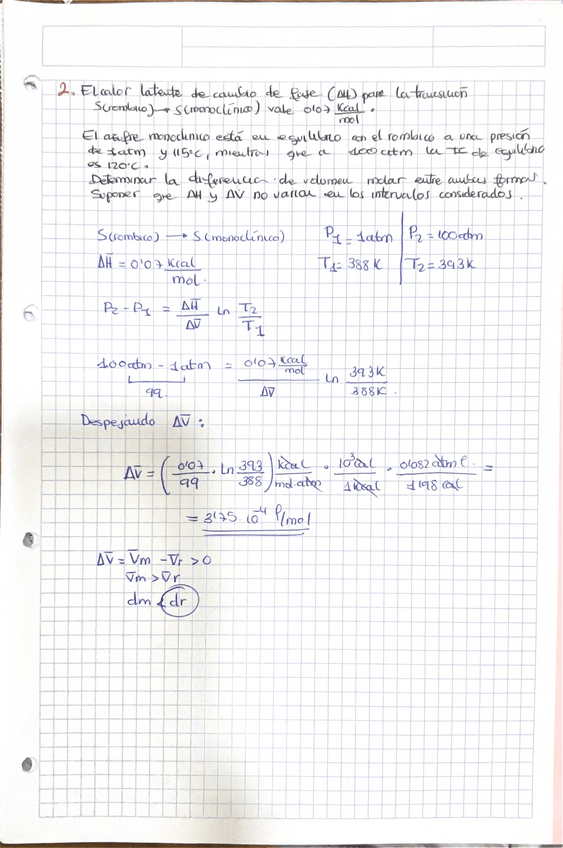 2. El calor latente de cambio de fase (ΔH) para la transición
S(rómbico) → S(monoclínico) vale 0'07 Kcal/mol.
El azufre monoclínico está en equilibrio con el rómbico a una presión
de 1atm y 115ºC, mientras que a 100atm la Tª de equilibrio
es 120ºC.
Determinar la diferencia de volumen molar entre ambas formas.
Suponer que ΔH y ΔV no varían en los intervalos considerados.
S(rómbico) → S(monoclínico)
P₁ = 1atm | P₂ = 100atm
ΔH̅ = 0'07 Kcal/mol.
T₁ = 388K | T₂ = 393K
P₂ - P₁ = ΔH̅/ΔV̅ Ln T₂/T₁
100atm - 1atm = 0'07 Kcal/mol / ΔV̅ Ln 393K/388K.
99
Despejando ΔV̅ :
ΔV̅ = (0'07/99 · Ln 393/388) Kcal/mol·atm · 10³cal/1Kcal · 0'082 atm l./1'98 cal =
= 3'75·10⁻⁴ l/mol
ΔV̅ = V̅m - V̅r > 0
V̅m > V̅r
dm < dr